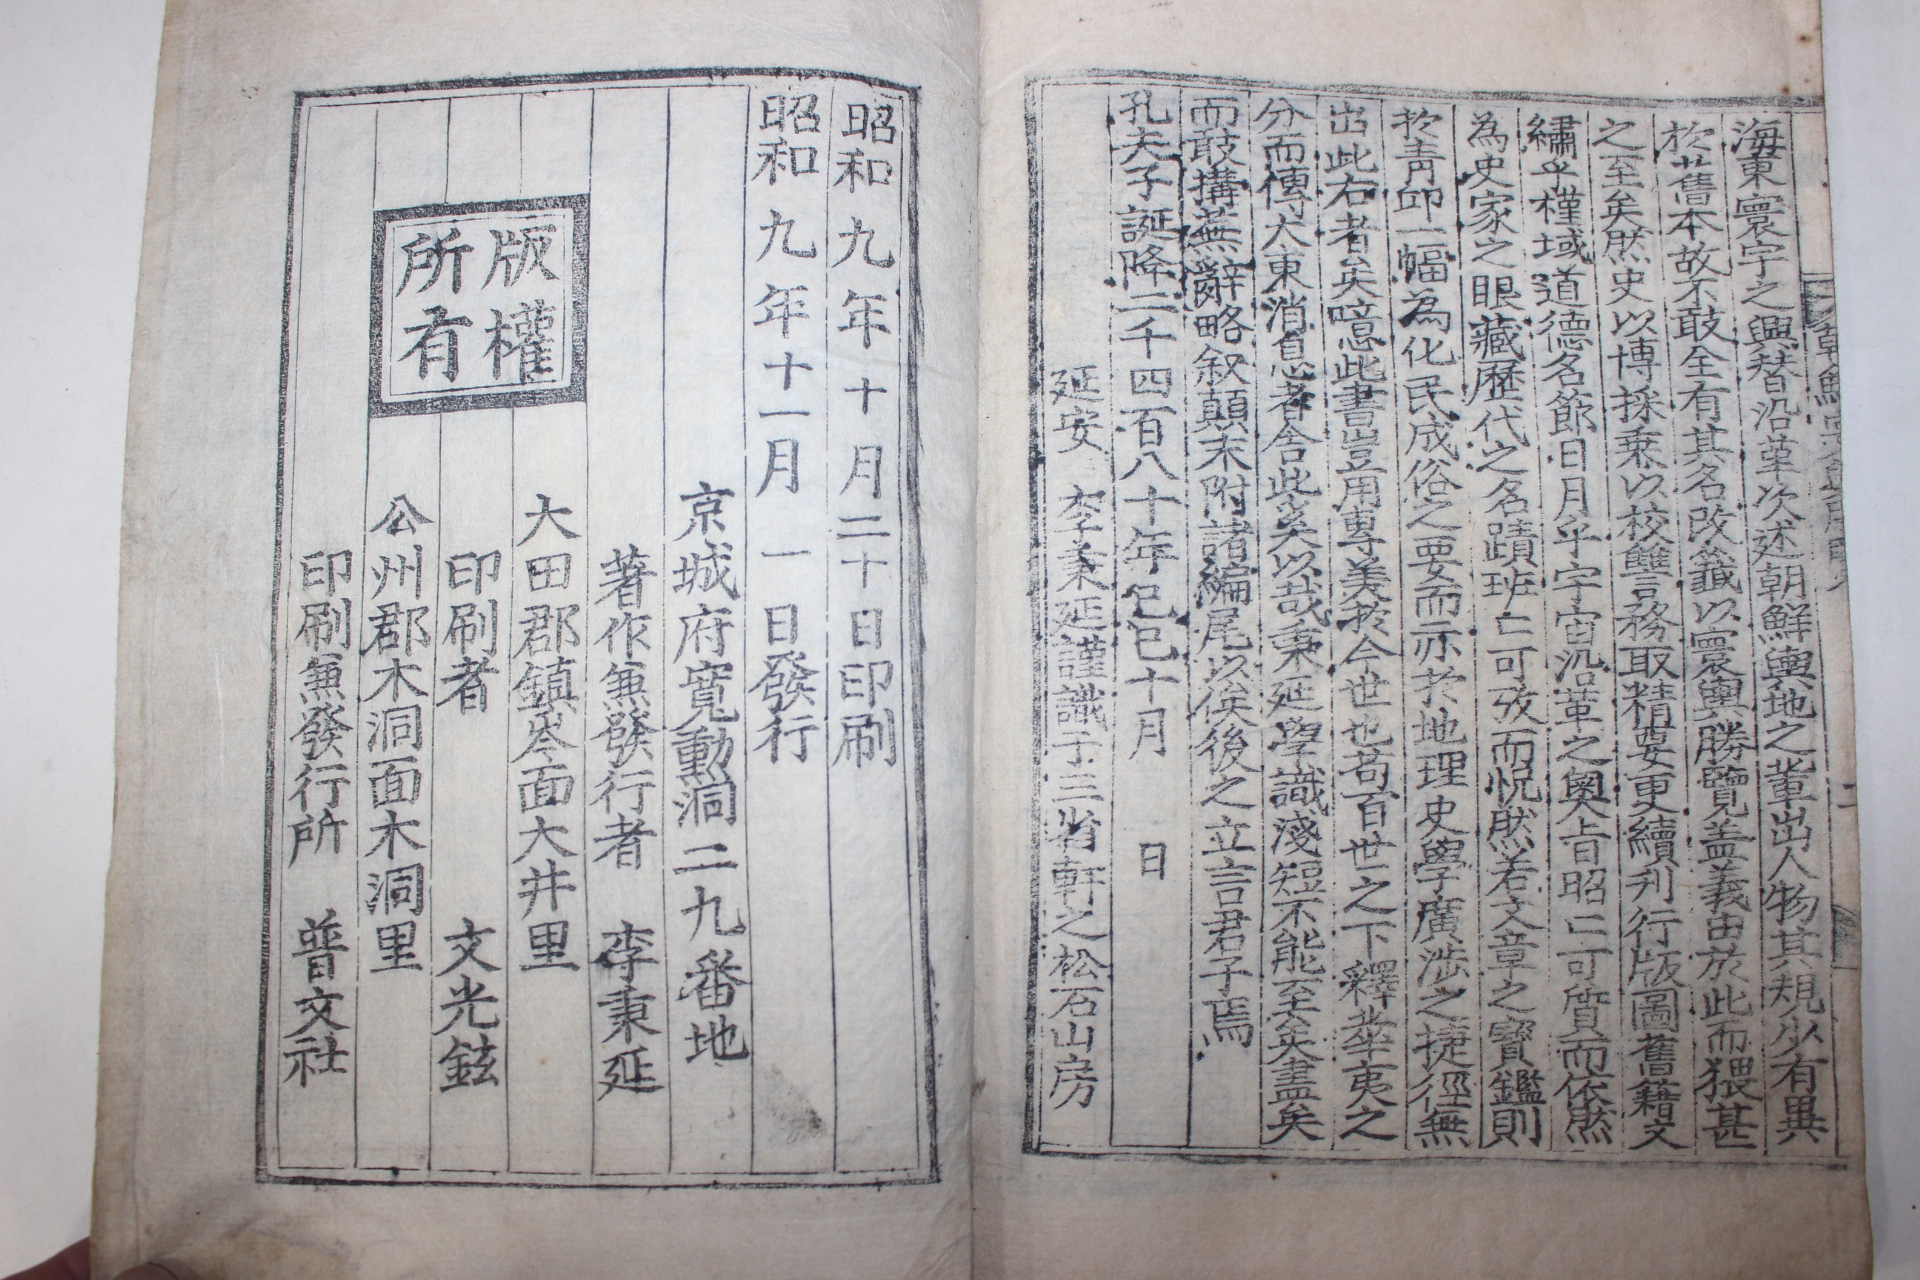 海東寰宇之興替沿革次述朝鮮輿地之輩出人物其規少有異
於舊本故不敢全有其名改籤以寰輿勝覽盖義由於此而猥甚
之至矣然史以博採乗以校讐言務取精要更續刋行版圖舊籍文
繡乎槿域道德名節日月乎宇宙沿革之奧旨昭亡可質而依然
為史家之眼藏歷代之名蹟班亡可攷而怳然若文章之寶鑑則
於靑邱一幅為化民成俗之要而亦於地理史學廣涉之捷徑無
出此右者矣噫此書豈用專美於今世也苟百世之下釋彝夷之
分而傳大東消息者舍此奚以哉秉延學識淺短不能至矣盡矣
而敢搆蕪辭略叙顛末附諸編尾以俟後之立言君子焉
孔夫子誕降二千四百八十年己巳十月 日
延安 李秉延謹識于三省軒之松石山房
昭和九年十月二十日印刷
昭和九年十一月一日發行
京城府寬勳洞二九番地
著作兼發行者 李秉延
大田郡鎮岑面大井里
印刷者 文光鉉
公州郡木洞面木洞里
印刷兼發行所 普文社
版權
所有